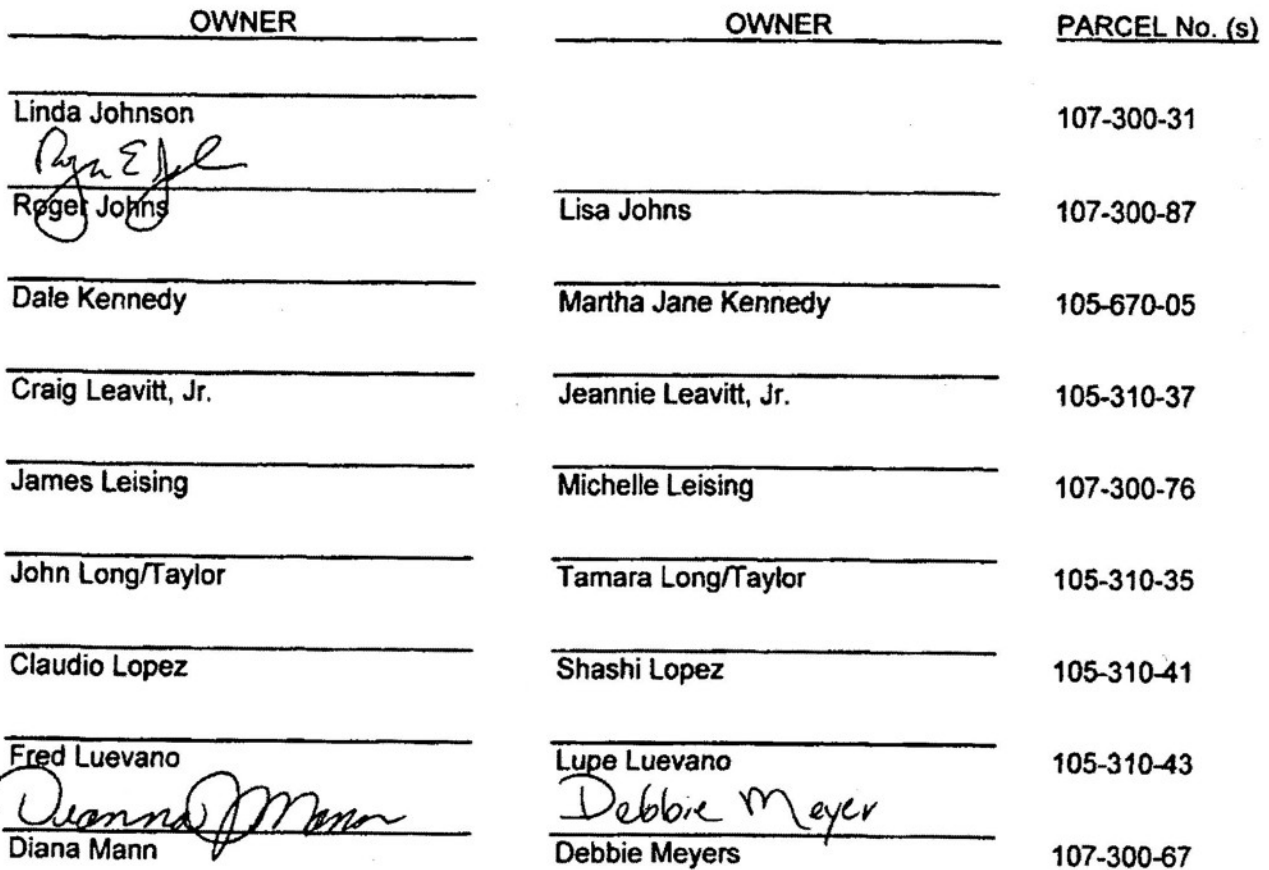 OWNER OWNER PARCEL No. (s)
Linda Johnson 107-300-31
Roger Johns Lisa Johns 107-300-87
Dale Kennedy Martha Jane Kennedy 105-670-05
Craig Leavitt, Jr. Jeannie Leavitt, Jr. 105-310-37
James Leising Michelle Leising 107-300-76
John Long/Taylor Tamara Long/Taylor 105-310-35
Claudio Lopez Shashi Lopez 105-310-41
Fred Luevano Lupe Luevano 105-310-43
Deanna J Mann Debbie Meyer
Diana Mann Debbie Meyers 107-300-67